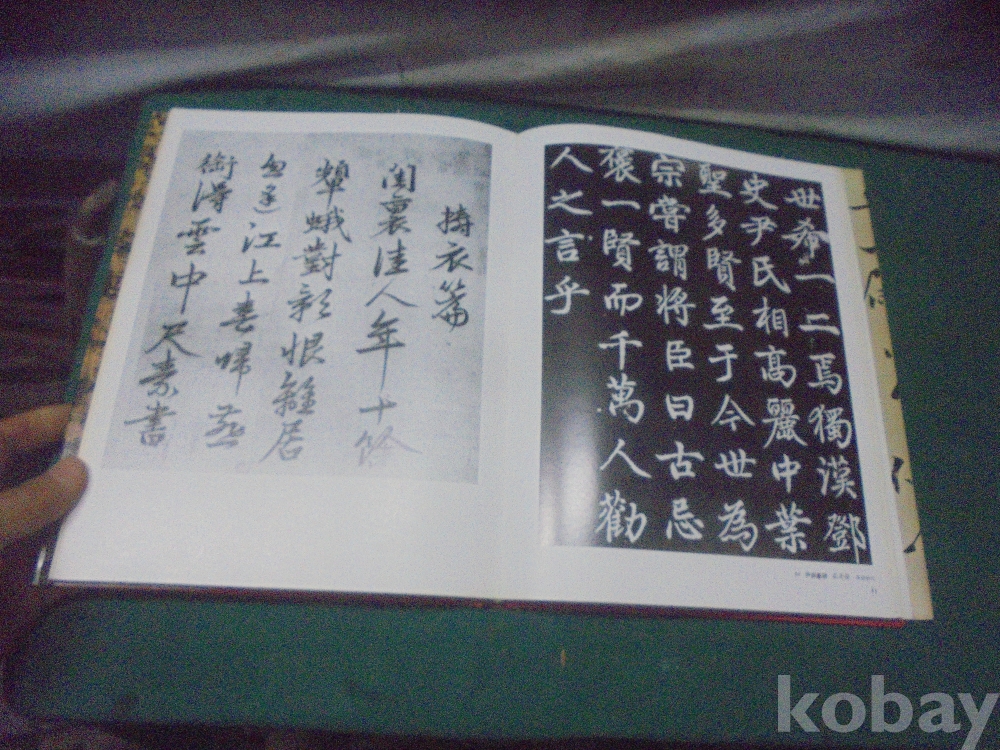 擣衣篇
閨裏佳人年十餘
顰蛾對影恨離居
忽逢江上春歸燕
銜得雲中尺素書
世希一二焉獨漢鄧
史尹氏相高麗中葉
聖多賢至于今世為
宗嘗謂將臣曰古忌
褒一賢而千萬人勸
人之言乎
kobay